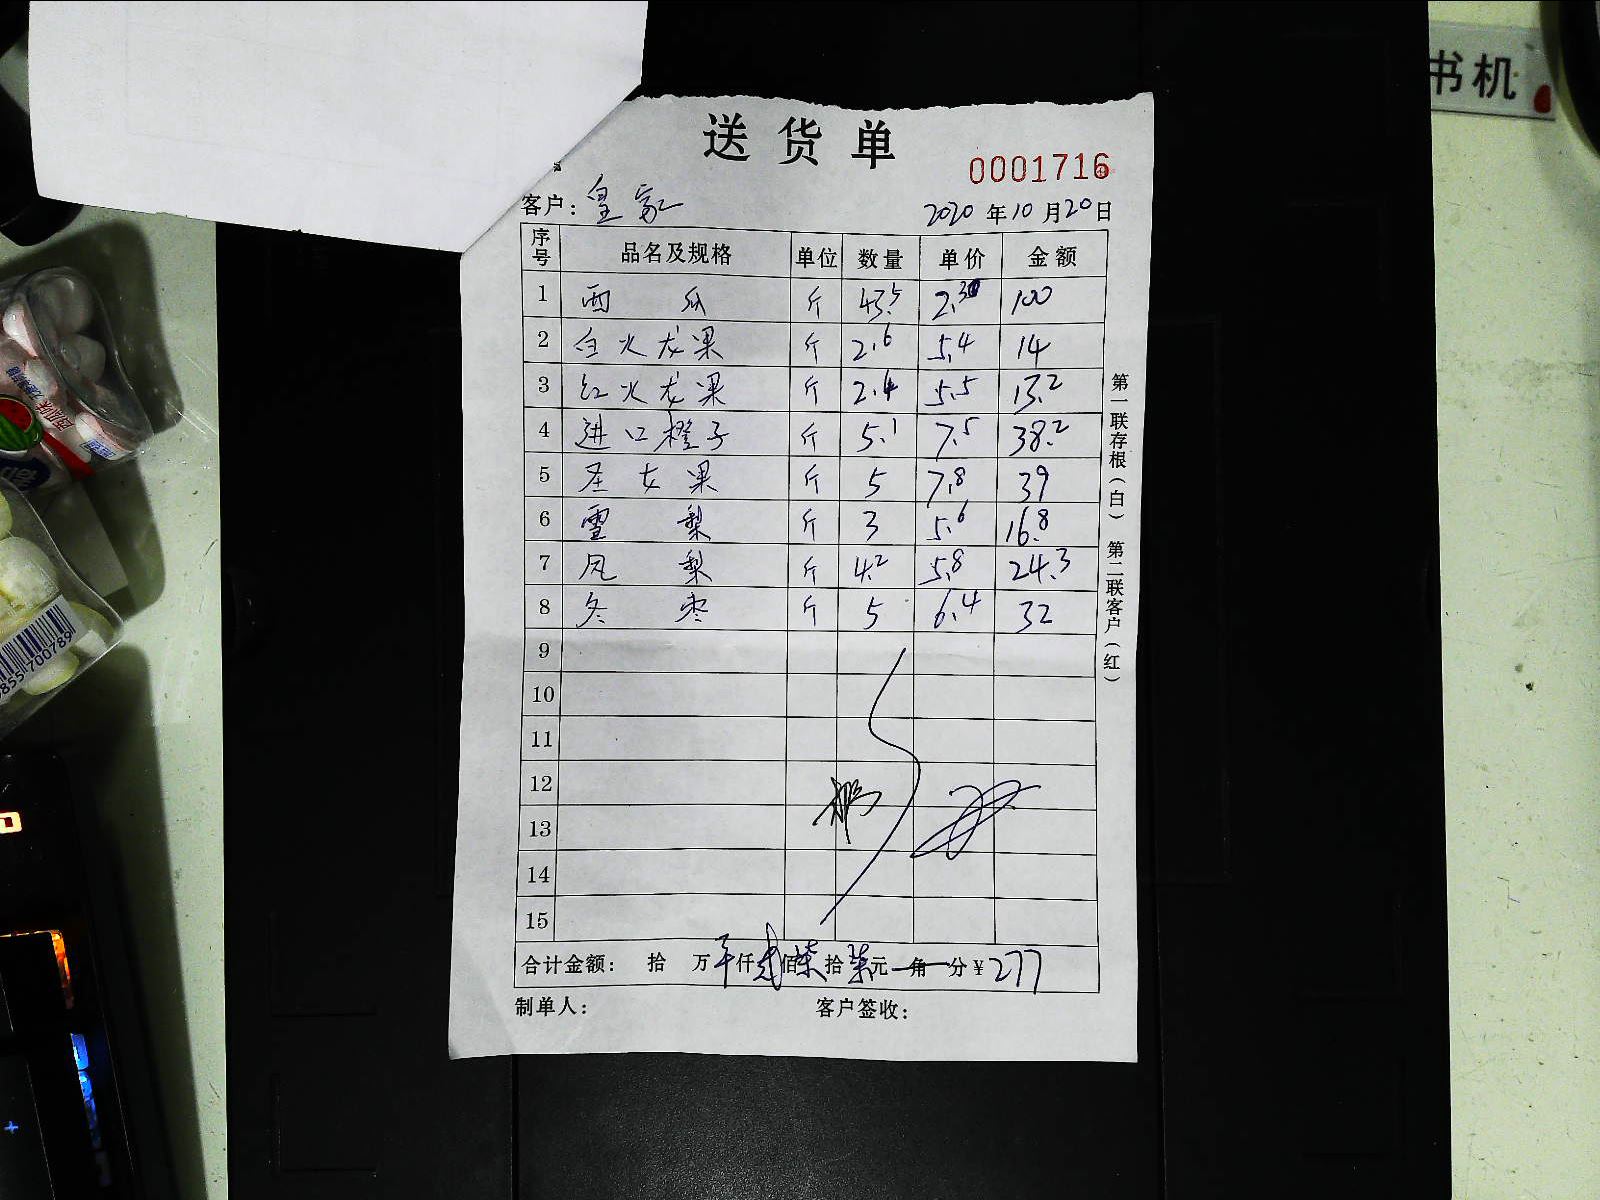 书机
送货单
0001716
客户: 皇家
2020年10月20日
序号 品名及规格 单位 数量 单价 金额
1 西瓜 斤 43.5 2.30 100
2 白火龙果 斤 2.6 5.4 14
3 红火龙果 斤 2.4 5.5 13.2
4 进口橙子 斤 5.1 7.5 38.2
5 圣女果 斤 5 7.8 39
6 雪梨 斤 3 5.6 16.8
7 凤梨 斤 4.2 5.8 24.3
8 冬枣 斤 5 6.4 32
9
10
11
12
13
14
15
合计金额: 拾 万 仟 贰佰 柒拾 柒元 角 分 ¥277
制单人: 客户签收:
第一联存根(白) 第二联客户(红)
855 700789